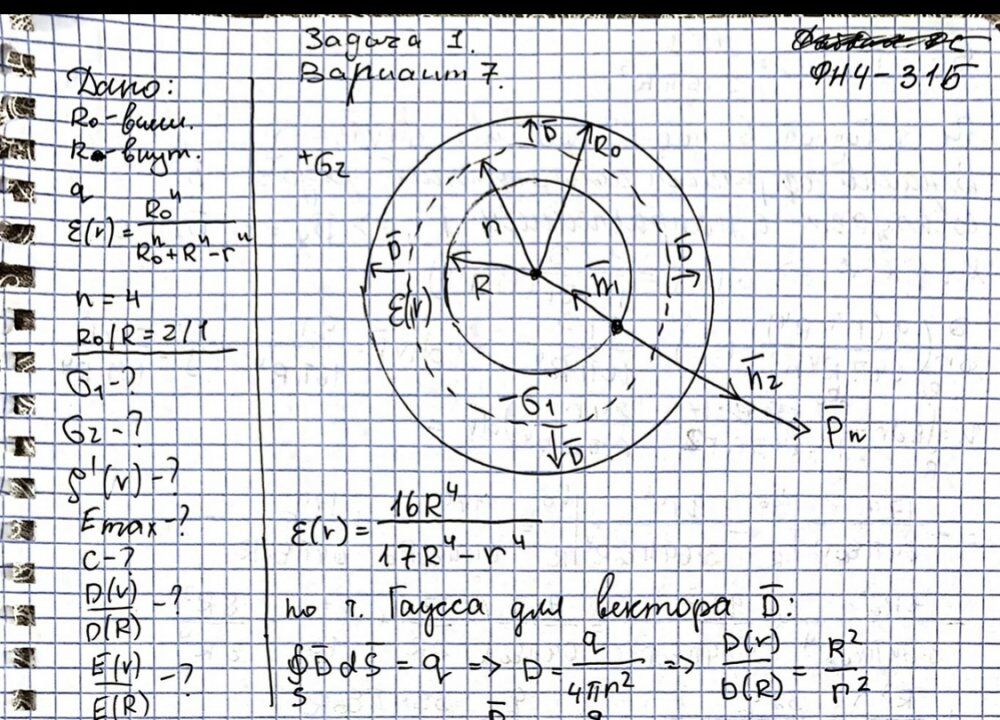 Задача 1.
Вариант 7.
ФН4-31Б
Дано:
R₀-внеш.
R-внут.
q
ε(r) = R₀ⁿ / (R₀ⁿ + Rⁿ - rⁿ)
n = 4
R₀/R = 2/1
σ₁-?
σ₂-?
ρ'(r)-?
Emax-?
C-?
D(r)/D(R) -?
E(r)/E(R) -?
+σ₂
D̄
R₀
r
D̄
D̄
R
n̄₁
ε(r)
-σ₁
n̄₂
D̄
P̄n
ε(r) = 16R⁴ / (17R⁴ - r⁴)
по т. Гаусса для вектора D̄:
∮ₛ D̄dS̄ = q => D = q / 4πr² => D(r)/D(R) = R²/r²